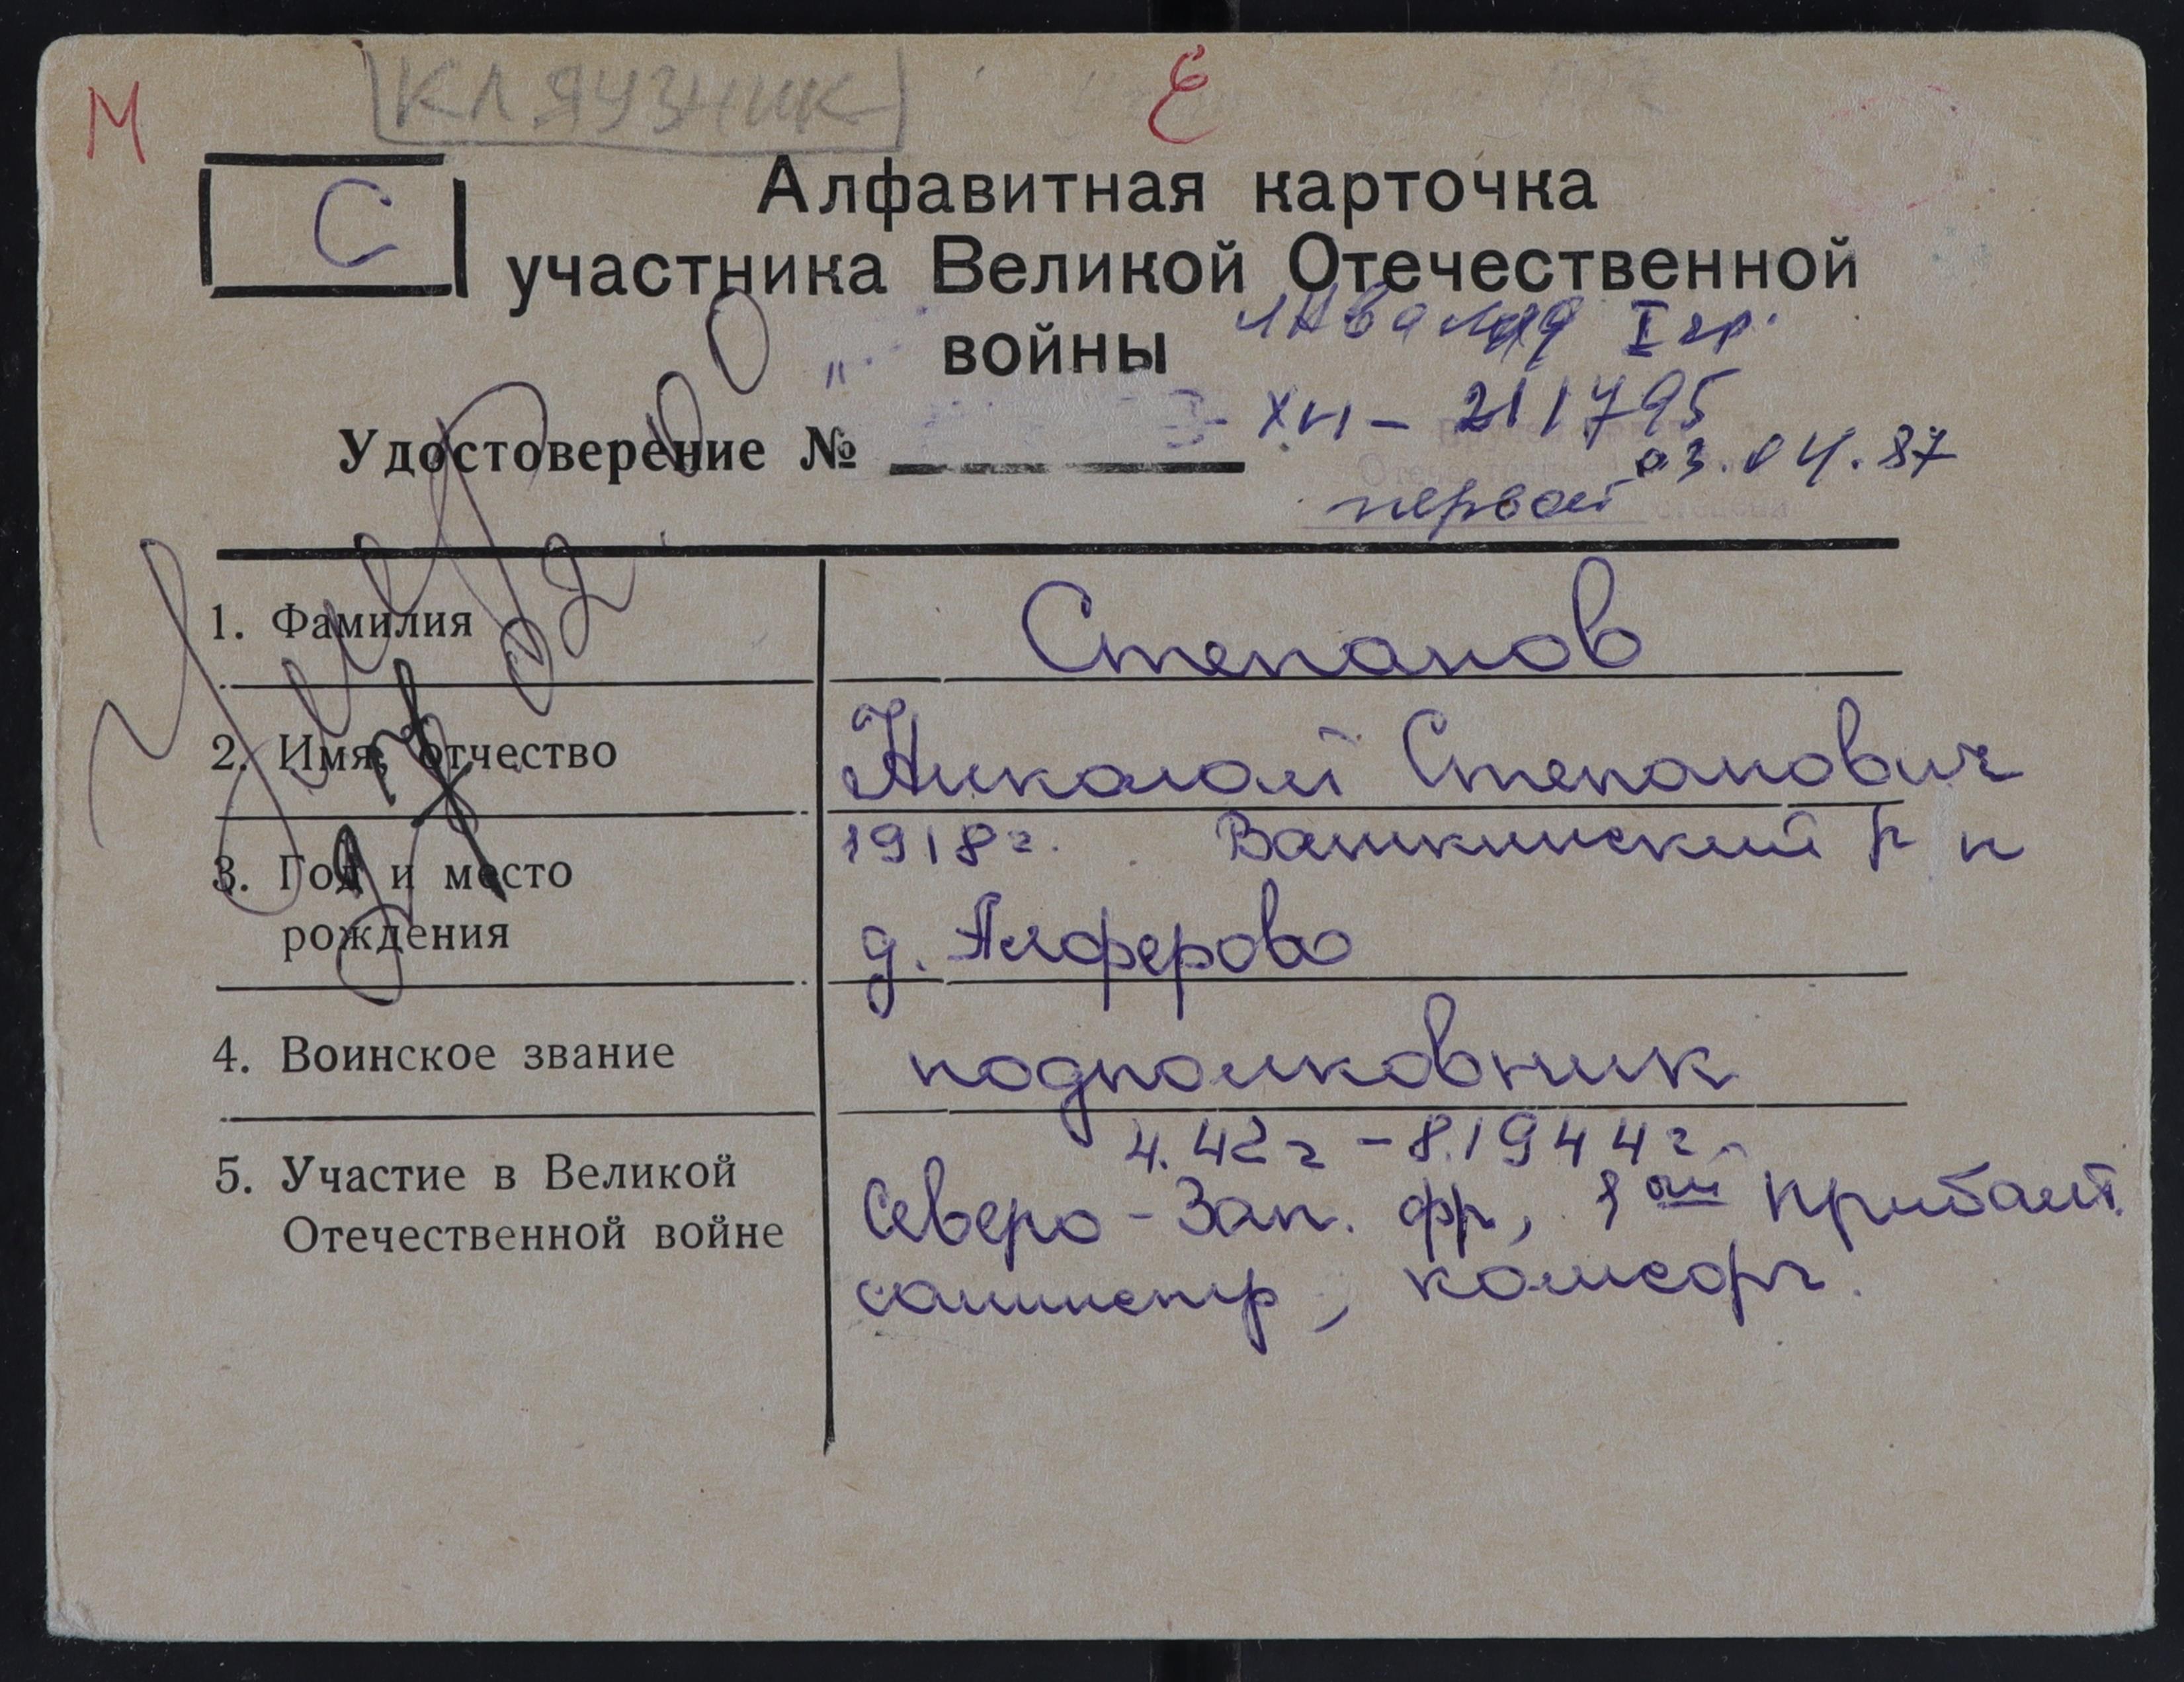 М КЛЯУЗНИК Е
С
Алфавитная карточка
участника Великой Отечественной
войны
инвалид I гр.
Удостоверение № XII - 211795
03.04.87
первой
1. Фамилия Степанов
2. Имя, отчество Николай Степанович
3. Год и место рождения 1918г. Вашкинский р н
д. Алферово
4. Воинское звание подполковник
5. Участие в Великой Отечественной войне 4.42г - 8.1944г.
Северо-Зап. фр, 1ый Прибалт.
комсорг.